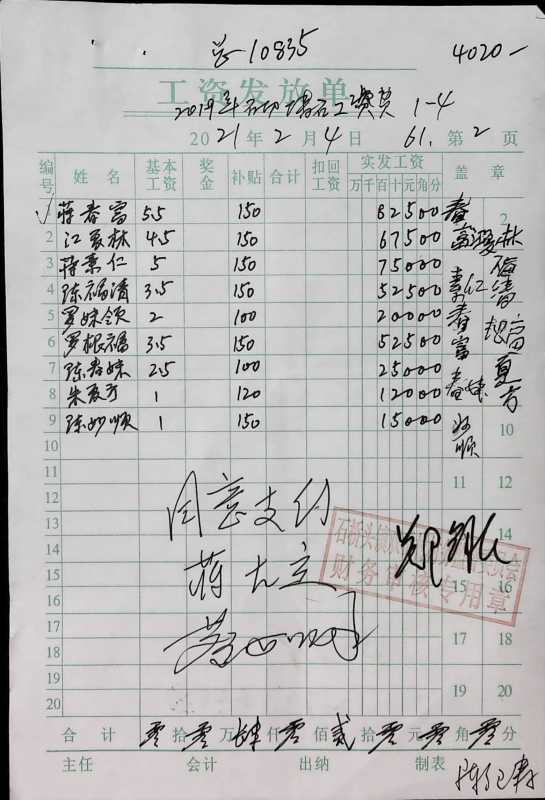 总-10835
4020-
工资发放单
2019年 工资 1-4
2021年2月4日 61. 第2页
编号 姓名 基本工资 奖金 补贴 合计 扣回工资 实发工资 万千百十元角分 盖章
蒋春富 5.5 150 82500 春富 2
2 江夏林 4.5 150 67500 夏林
3 蒋素仁 5 150 75000 素仁
4 陈福清 3.5 150 52500 福清
5 罗妹领 2 100 20000
6 罗根福 3.5 150 52500
7 陈春妹 2.5 100 25000 春妹
8 朱夏方 1 120 12000 夏方
9 陈妙顺 1 150 15000 妙顺 10
10
11 11 12
12
13 14
14
15 15 16
16
17 17 18
18
19 19 20
20
同意支付
石桥头镇
财务审核专用章
合计 零拾零万肆仟零佰贰拾零元零角零分
主任 会计 出纳 制表